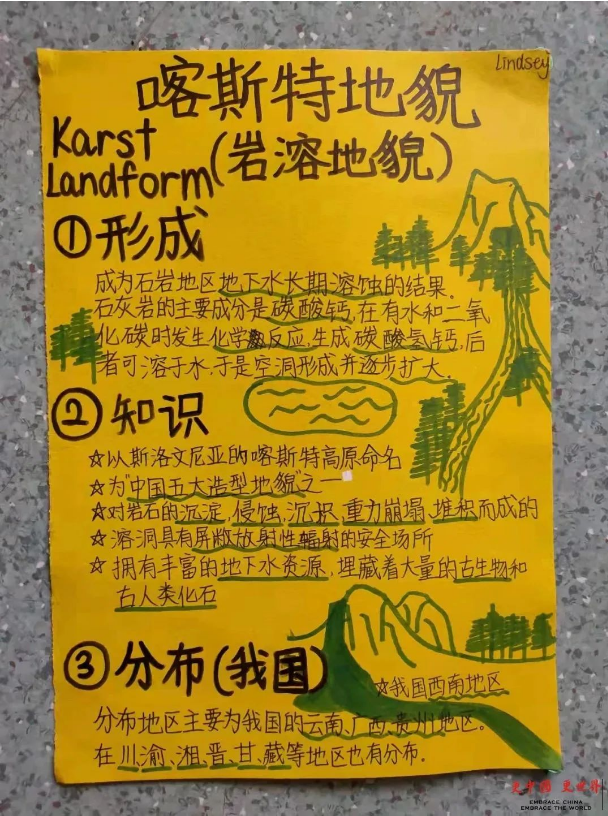 Lindsey
喀斯特地貌
Karst
Landform
(岩溶地貌)
①形成
成为石岩地区地下水长期溶蚀的结果。
石灰岩的主要成分是碳酸钙,在有水和二氧
化碳时发生化学反应,生成碳酸氢钙,后
者可溶于水,于是空洞形成并逐步扩大。
②知识
☆以斯洛文尼亚的喀斯特高原命名
☆为"中国五大造型地貌"之一
☆对岩石的沉淀,侵蚀,沉积,重力崩塌,堆积而成的
☆溶洞具有屏敝放射性辐射的安全场所
☆拥有丰富的地下水资源,埋藏着大量的古生物和
古人类化石
③分布(我国)
☆我国西南地区
分布地区主要为我国的云南、广西、贵州地区。
在川、渝、湘、晋、甘、藏等地区也有分布.
EMBRACE CHINA
EMBRACE THE WORLD